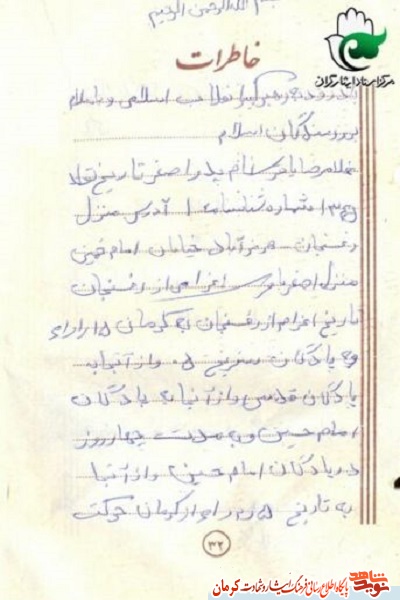 بسم الله الرحمن الرحیم
خاطرات
مرکز اسناد ایثارگران
با درود به رهبر کبیر انقلاب اسلامی و با سلام
بر رزمندگان اسلام
غلامرضا نام پدر اصغر تاریخ تولد
شماره شناسنامه ۱ آدرس منزل
رفسنجان خیابان امام خمینی
منزل اصغر اعزامی از رفسنجان
تاریخ اعزام از رفسنجان به کرمان
پادگان و از آنجا به
پادگان قدس و از آنجا به پادگان
امام حسین و به مدت چهار روز
در پادگان امام حسین و از آنجا
به تاریخ از کرمان حرکت
۳۲
نوید شاهد
پایگاه اطلاع رسانی فرهنگ ایثار و شهادت کرمان